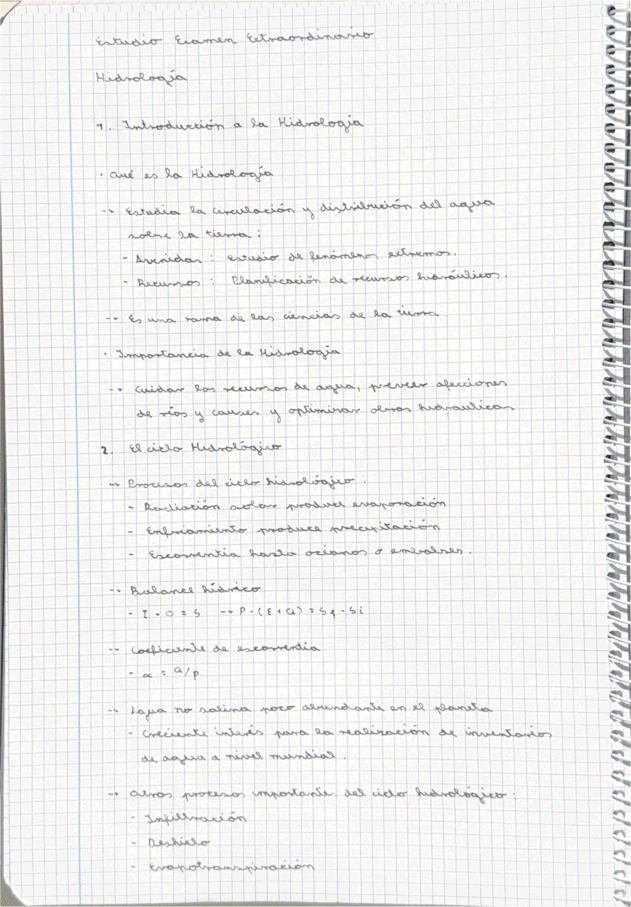 Estudio Examen Extraordinario
Hidrología
1. Introducción a la Hidrología
· Qué es la Hidrología
-> Estudia la circulación y distribución del agua
sobre la tierra:
- Avenidas: Estudio de fenómenos extremos.
- Recursos: Planificación de recursos hidráulicos.
-> Es una rama de las ciencias de la tierra
· Importancia de la Hidrología
-> Cuidar los recursos de agua, preveer afecciones
de ríos y causes y optimizar obras hidraulicas
2. El ciclo Hidrológico
-> Procesos del ciclo hidrológico:
- Radiación solar produce evaporación
- Enfriamiento produce precipitación
- Escorrentia hasta océanos o embalses.
-> Balance hídrico
- I - O = S -> P - (E + Q) = Sf - Si
-> Coeficiente de escorrentia
- α = Q/P
-> Agua no salina poco abundante en el planeta
- Creciente interés para la realización de inventarios
de agua a nivel mundial.
-> Otros procesos importante del ciclo hidrológico:
- Infiltración
- Deshielo
- Evapotranspiración